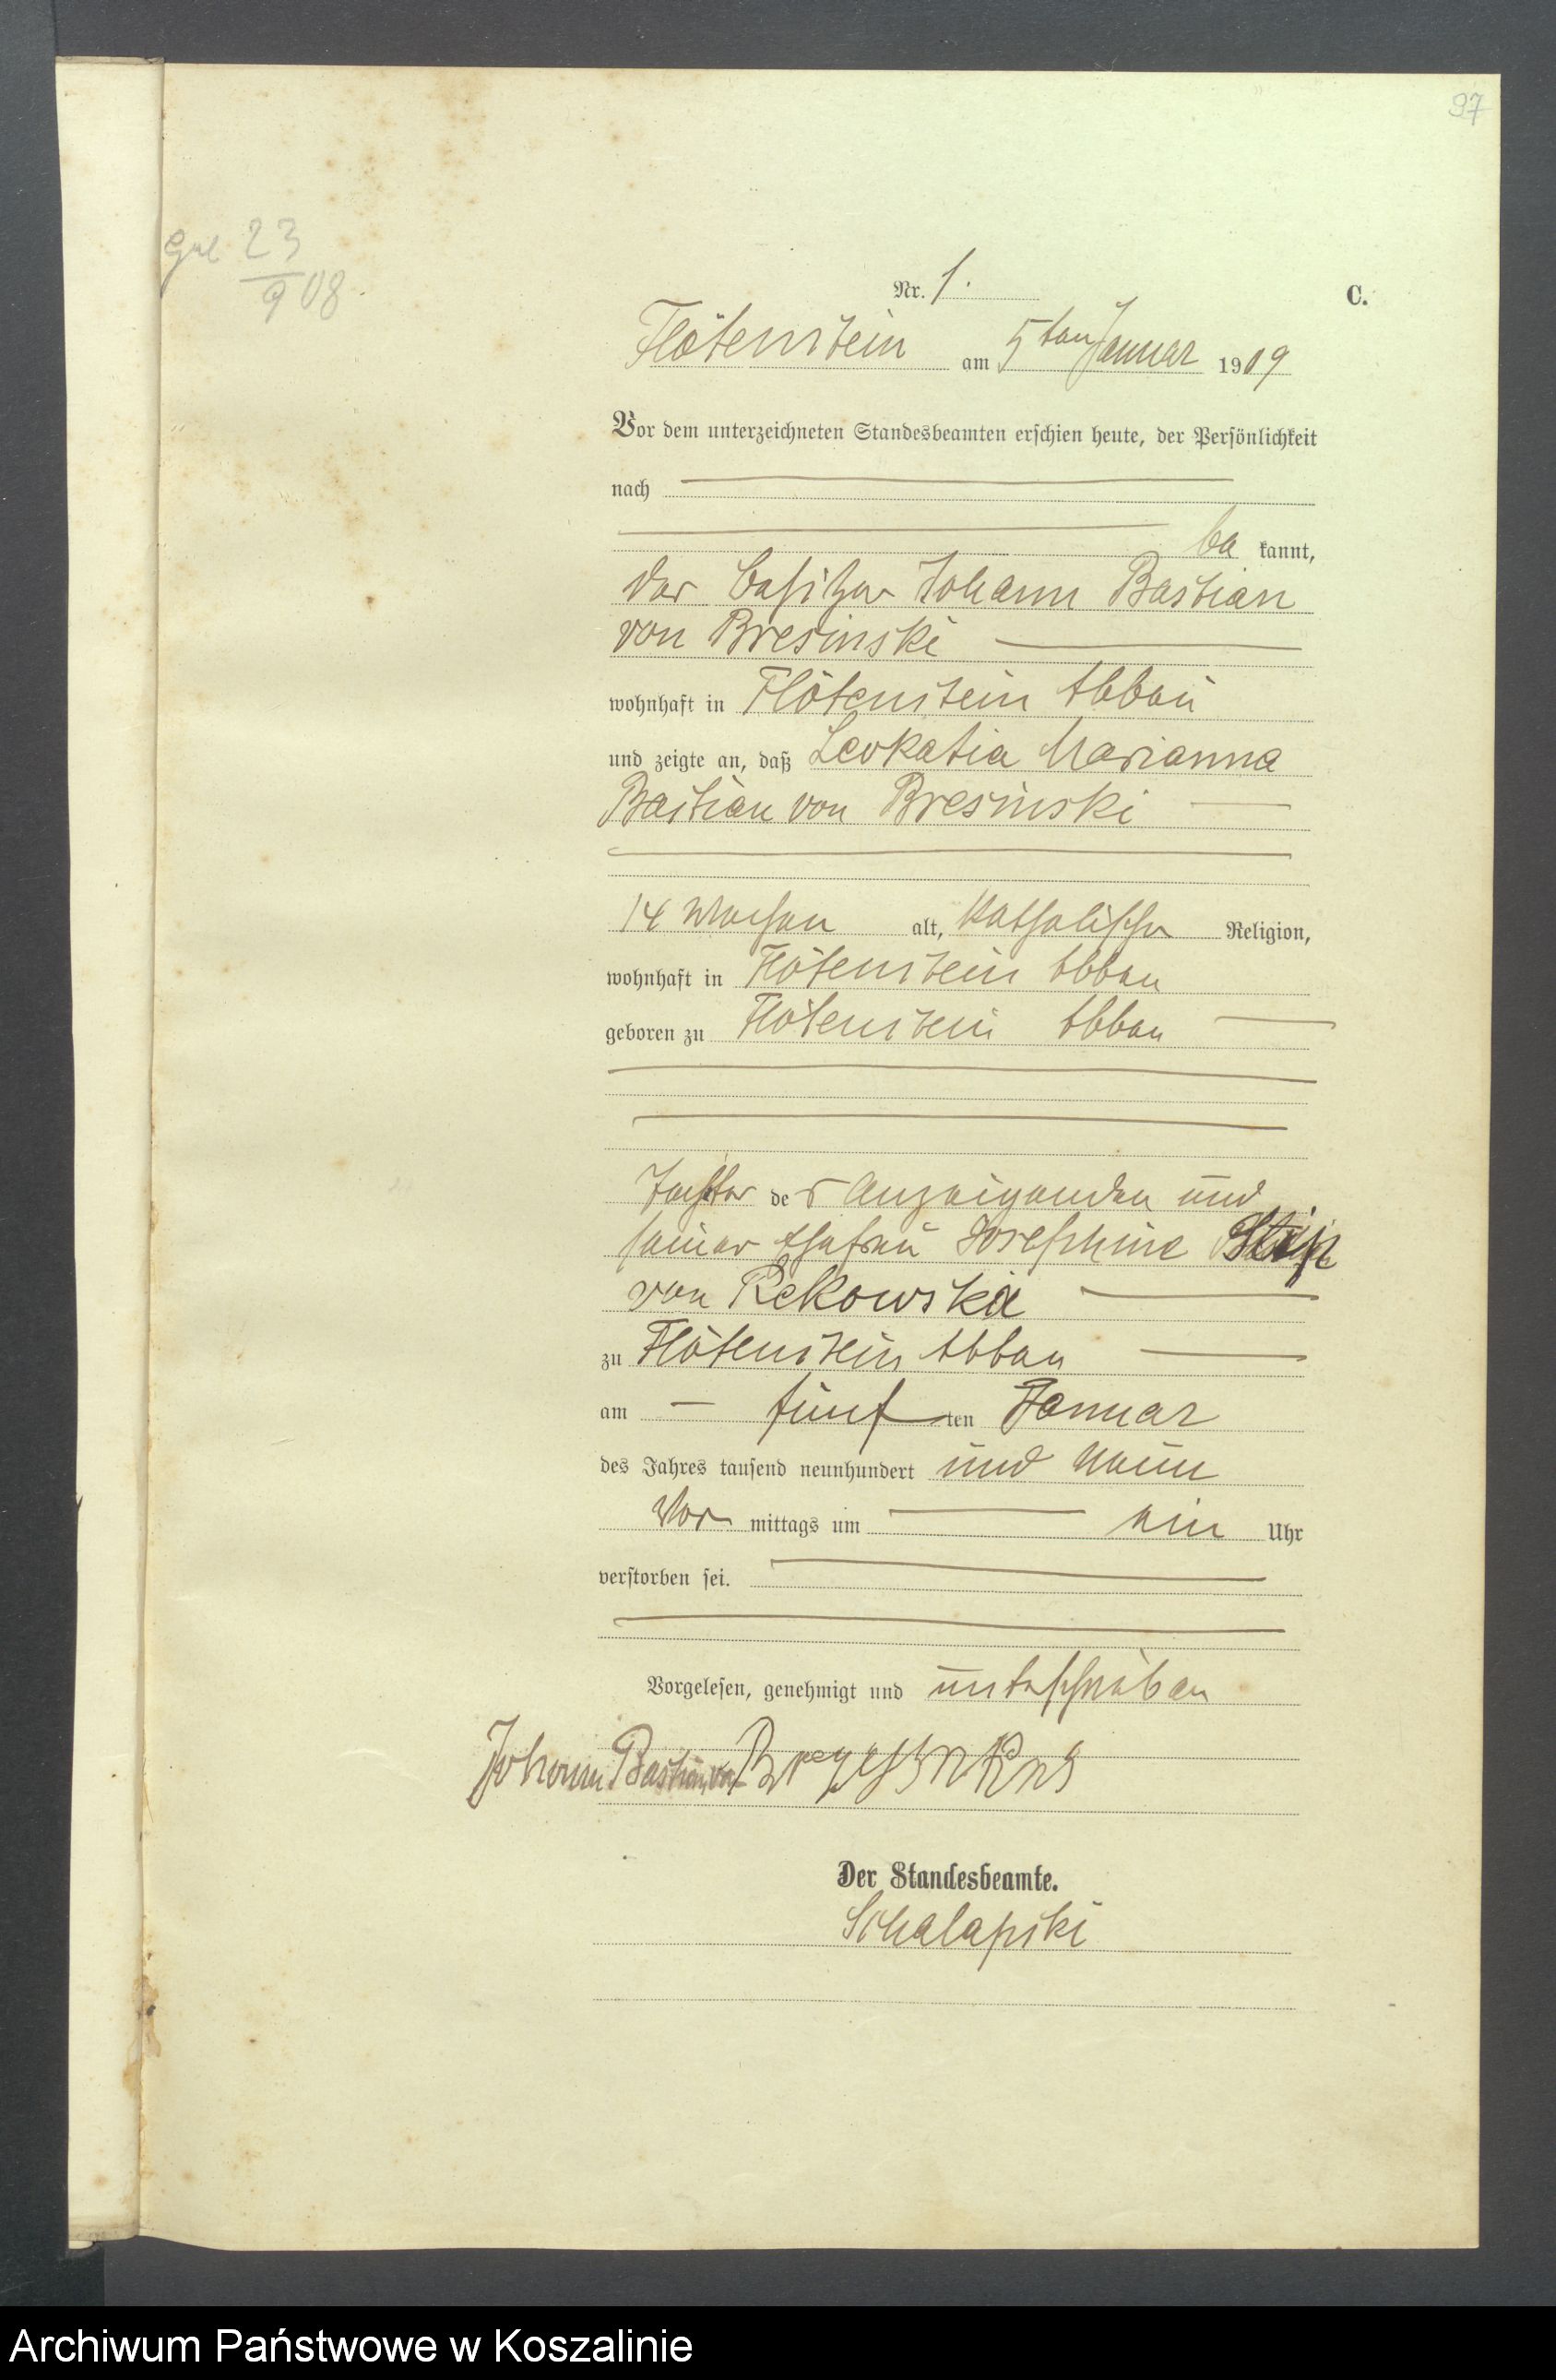 97
Geb 23
9 08.
Nr. 1.
C.
Flötenstein am 5ten Januar 1909
Vor dem unterzeichneten Standesbeamten erschien heute, der Persönlichkeit
nach
be kannt,
der Besitzer Johann Bastian
von Bresinski
wohnhaft in Flötenstein Abbau
und zeigte an, daß Leokatia Marianna
Bastian von Bresinski
14 Wochen alt, katholischer Religion,
wohnhaft in Flötenstein Abbau
geboren zu Flötenstein Abbau
Tochter des Anzeigenden und
seiner Ehefrau Josephine
von Rekowski
zu Flötenstein Abbau
am fünften Januar
des Jahres tausend neunhundert und neun
Vor mittags um ein Uhr
verstorben sei.
Vorgelesen, genehmigt und unterschrieben
Johann Bastian von
Der Standesbeamte.
Schalapski
Archiwum Państwowe w Koszalinie